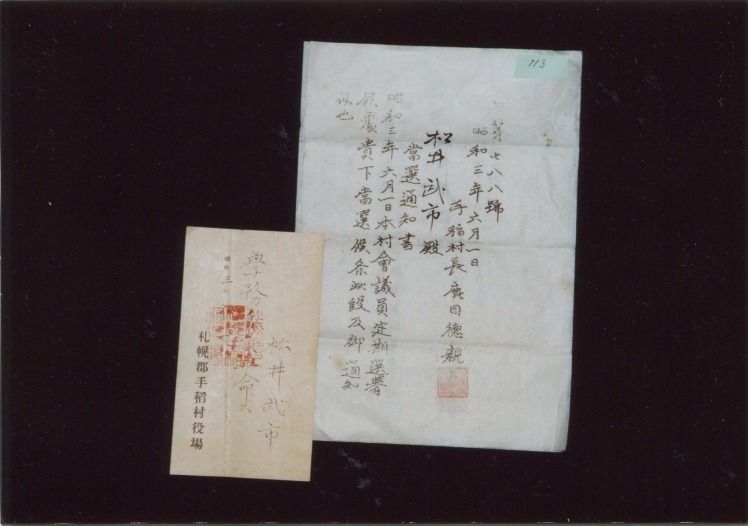 113
第七八八號
昭和三年六月一日
手稲村長
松井武市殿
當選通知書
昭和三年六月一日本村會議員定期選擧
候處貴下當選候条此段及御通知
候也
松井武市
學務
命ス
札幌郡手稲村役場